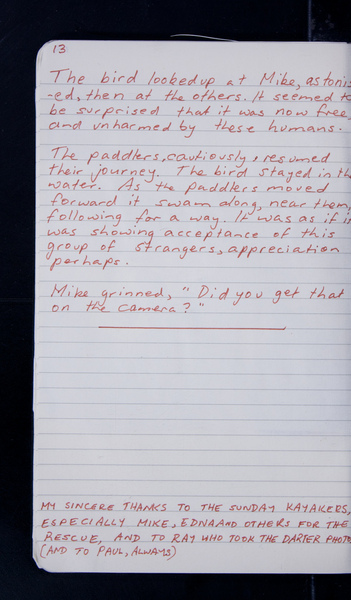 13
The bird looked up at Mike, astonis
-ed, then at the others. It seemed to
be surprised that it was now free
and unharmed by these humans.
The paddlers, cautiously, resumed
their journey. The bird stayed in the
water. As the paddlers moved
forward it swam along, near them,
following for a way. It was as if it
was showing acceptance of this
group of strangers, appreciation
perhaps.
Mike grinned, "Did you get that
on the camera?"
MY SINCERE THANKS TO THE SUNDAY KAYAKERS,
ESPECIALLY MIKE, EDNA AND OTHERS FOR THE
RESCUE, AND TO RAY WHO TOOK THE DARTER PHOTO
(AND TO PAUL, ALWAYS)